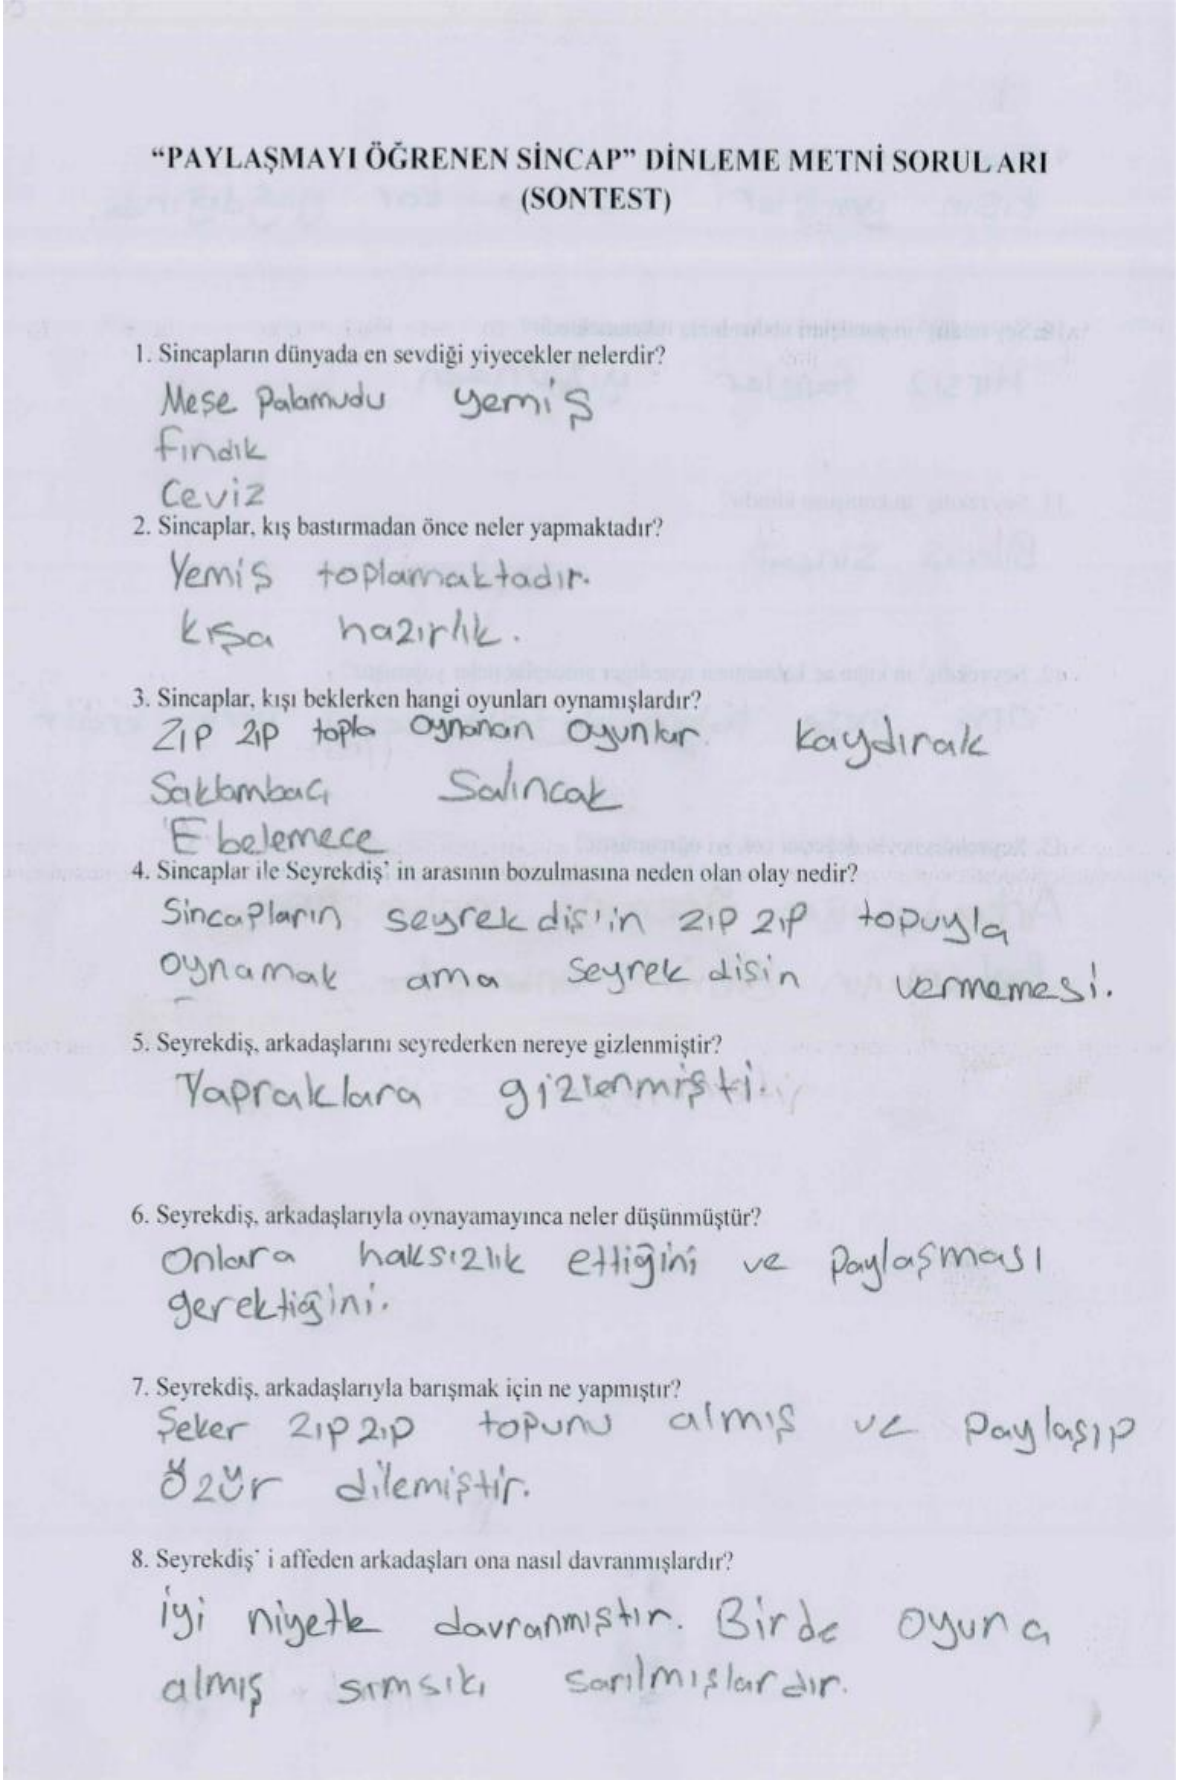 “PAYLAŞMAYI ÖĞRENEN SİNCAP” DİNLEME METNİ SORULARI
(SONTEST)
1. Sincapların dünyada en sevdiği yiyecekler nelerdir?
Meşe Palamudu yemiş
fındık
Ceviz
2. Sincaplar, kış bastırmadan önce neler yapmaktadır?
Yemiş toplamaktadır.
kışa hazırlık.
3. Sincaplar, kışı beklerken hangi oyunları oynamışlardır?
Zıp zıp topla oynanan oyunlar kaydırak
Saklambaç Salıncak
Ebelemece
4. Sincaplar ile Seyrekdiş' in arasının bozulmasına neden olan olay nedir?
Sincapların seyrek diş'in zıp zıp topuyla
oynamak ama seyrek dişin vermemesi.
5. Seyrekdiş, arkadaşlarını seyrederken nereye gizlenmiştir?
Yapraklara gizlenmişti.
6. Seyrekdiş, arkadaşlarıyla oynayamayınca neler düşünmüştür?
Onlara haksızlık ettiğini ve paylaşması
gerektiğini.
7. Seyrekdiş, arkadaşlarıyla barışmak için ne yapmıştır?
Şeker zıpzıp topunu almış ve paylaşıp
özür dilemiştir.
8. Seyrekdiş' i affeden arkadaşları ona nasıl davranmışlardır?
iyi niyetle davranmıştır. Birde oyuna
almış sımsıkı sarılmışlardır.